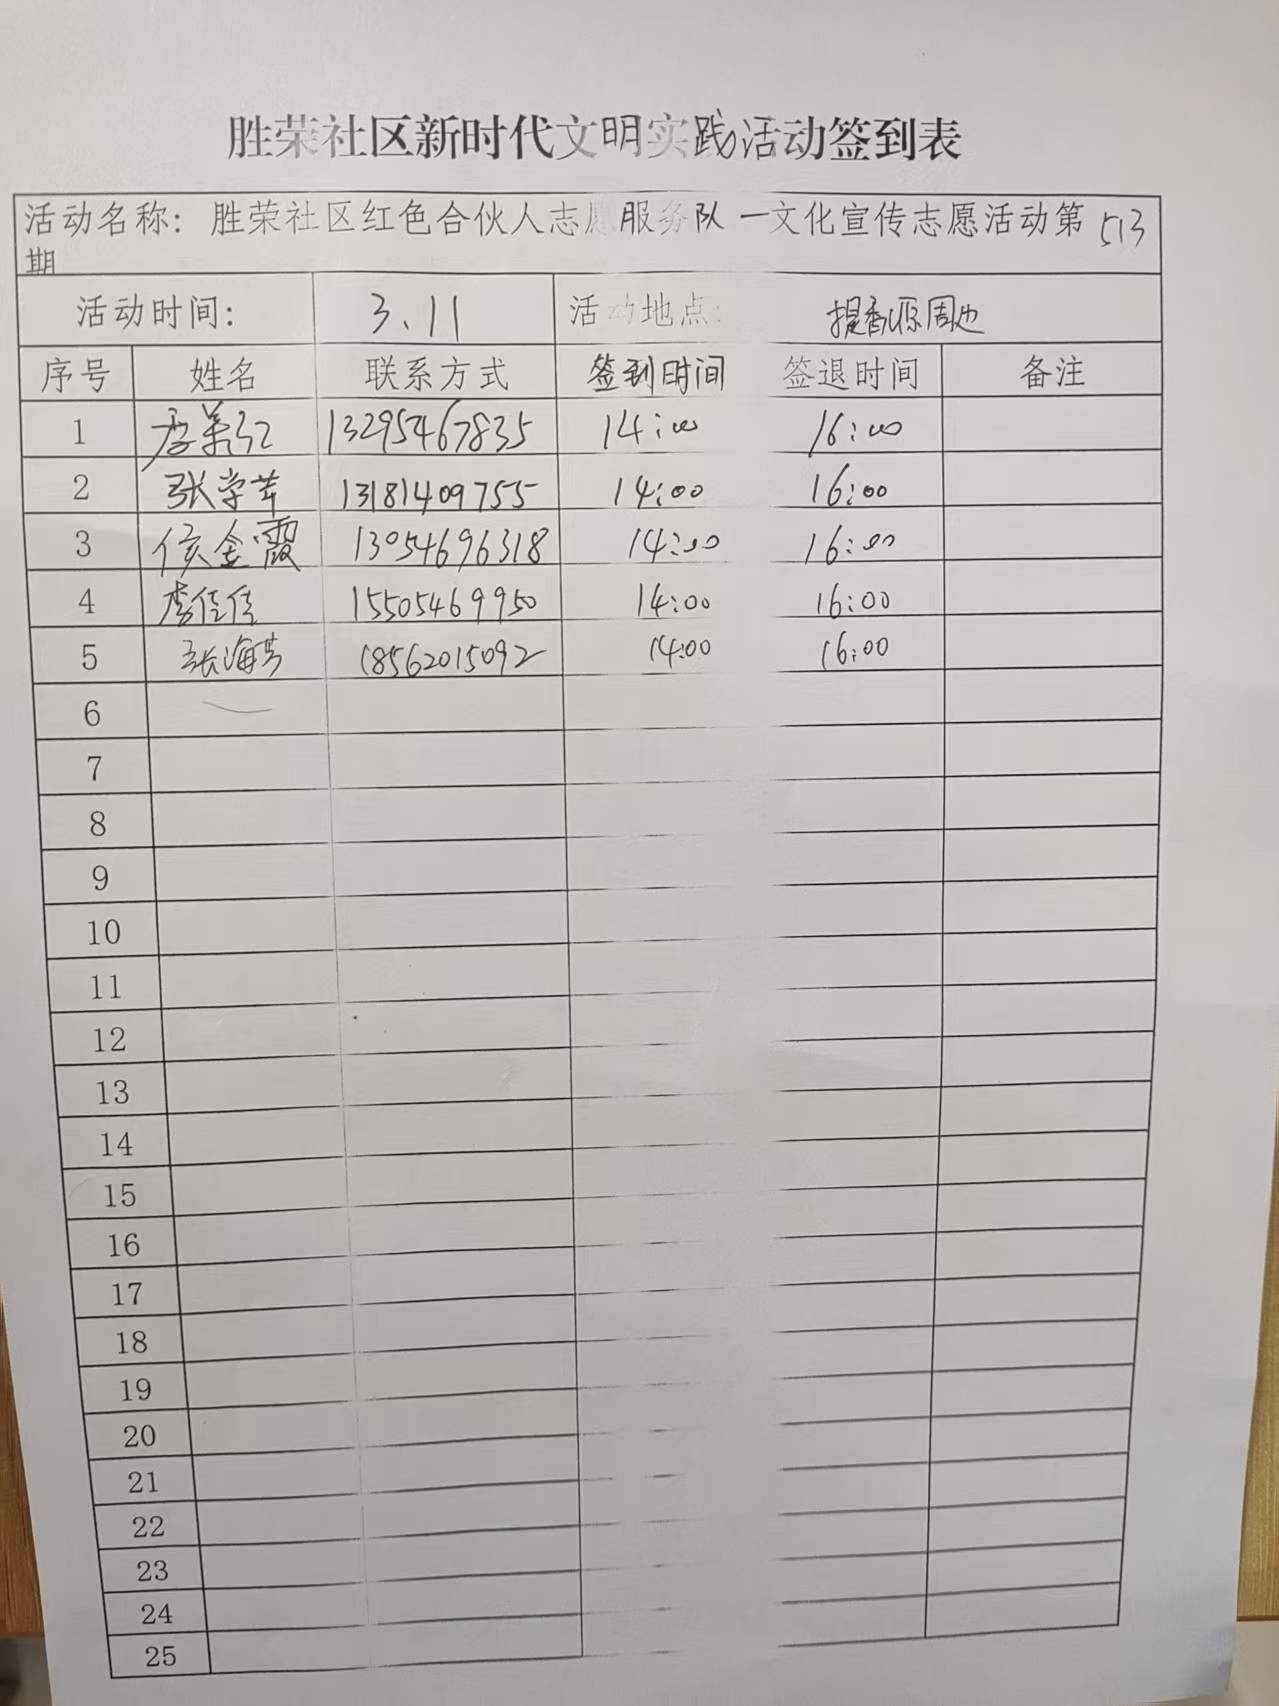 胜荣社区新时代文明实践活动签到表
活动名称：胜荣社区红色合伙人志愿服务队一文化宣传志愿活动第513
期
活动时间： 3.11 活动地点： 提香源周边
序号 姓名 联系方式 签到时间 签退时间 备注
1 13295467835 14:00 16:00
2 张学苹 13181409755 14:00 16:00
3 侯金霞 13054696318 14:00 16:00
4 李佳佳 15505469950 14:00 16:00
5 张海芳 18562015092 14:00 16:00
6
7
8
9
10
11
12
13
14
15
16
17
18
19
20
21
22
23
24
25